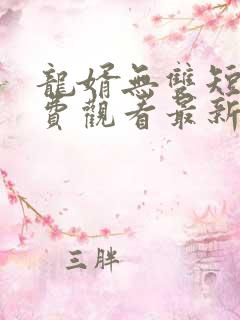 龍婿無雙短
費觀看最新
三胖